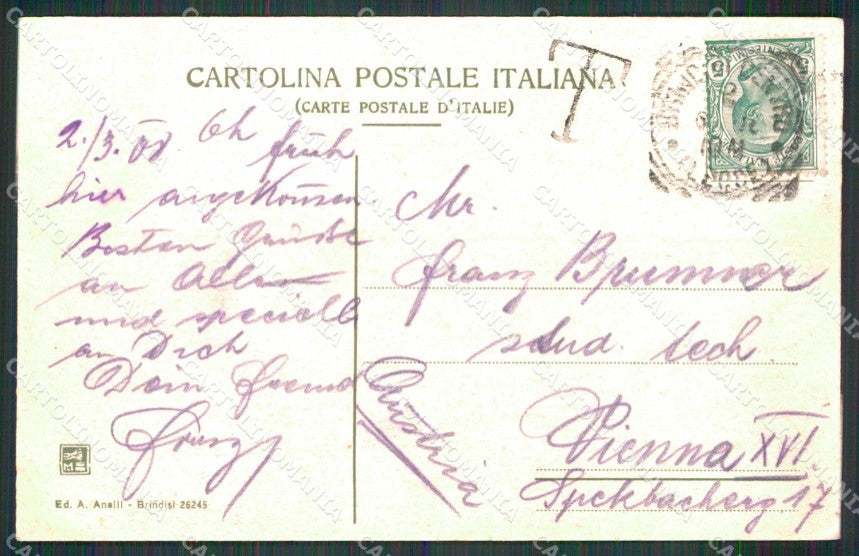 CARTOLINA POSTALE ITALIANA
(CARTE POSTALE D'ITALIE)
T
2./3. 08 6h früh
hier angekommen
Besten Grüße
an Allen
und speciell
an Dich
Dein Freund
Franz
Mr.
Franz Brummer
stud. tech.
Austria
Vienna XVI.
Speckbacherg 17
Ed. A. Anelli - Brindisi 26245
CARTOLINOMANIA